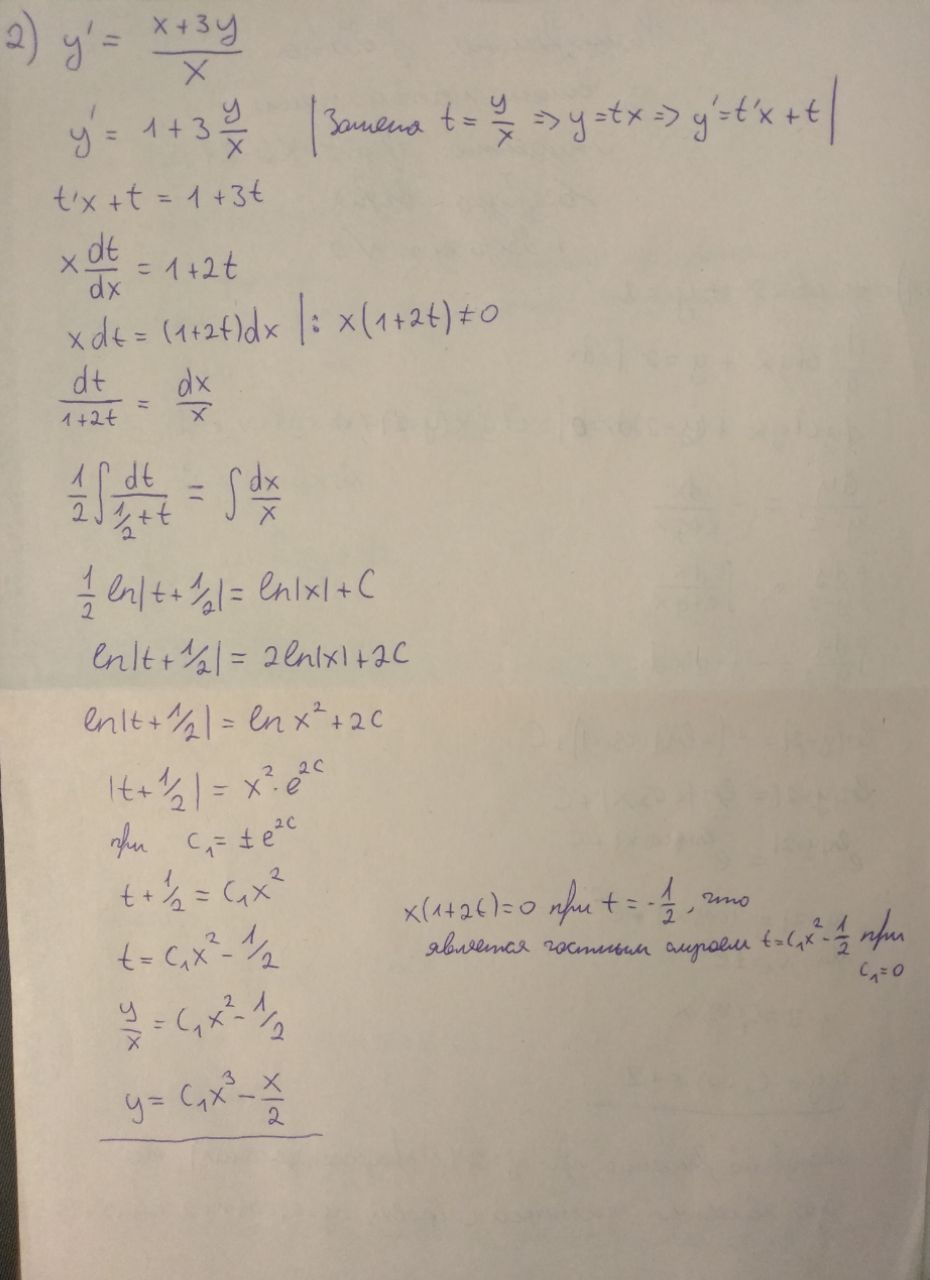 2) y' = (x+3y)/x
y' = 1+3 y/x |Замена t = y/x => y=tx => y'=t'x+t|
t'x+t = 1+3t
x dt/dx = 1+2t
x dt = (1+2t)dx |: x(1+2t)≠0
dt/(1+2t) = dx/x
1/2 ∫ dt/(1/2+t) = ∫ dx/x
1/2 ln|t+1/2| = ln|x|+C
ln|t+1/2| = 2ln|x|+2C
ln|t+1/2| = ln x²+2C
|t+1/2| = x²·e^(2C)
при C₁ = ±e^(2C)
t+1/2 = C₁x²
t = C₁x² - 1/2
y/x = C₁x² - 1/2
y = C₁x³ - x/2
x(1+2t)=0 при t = -1/2, что
является частным случаем t=C₁x² - 1/2 при
C₁=0